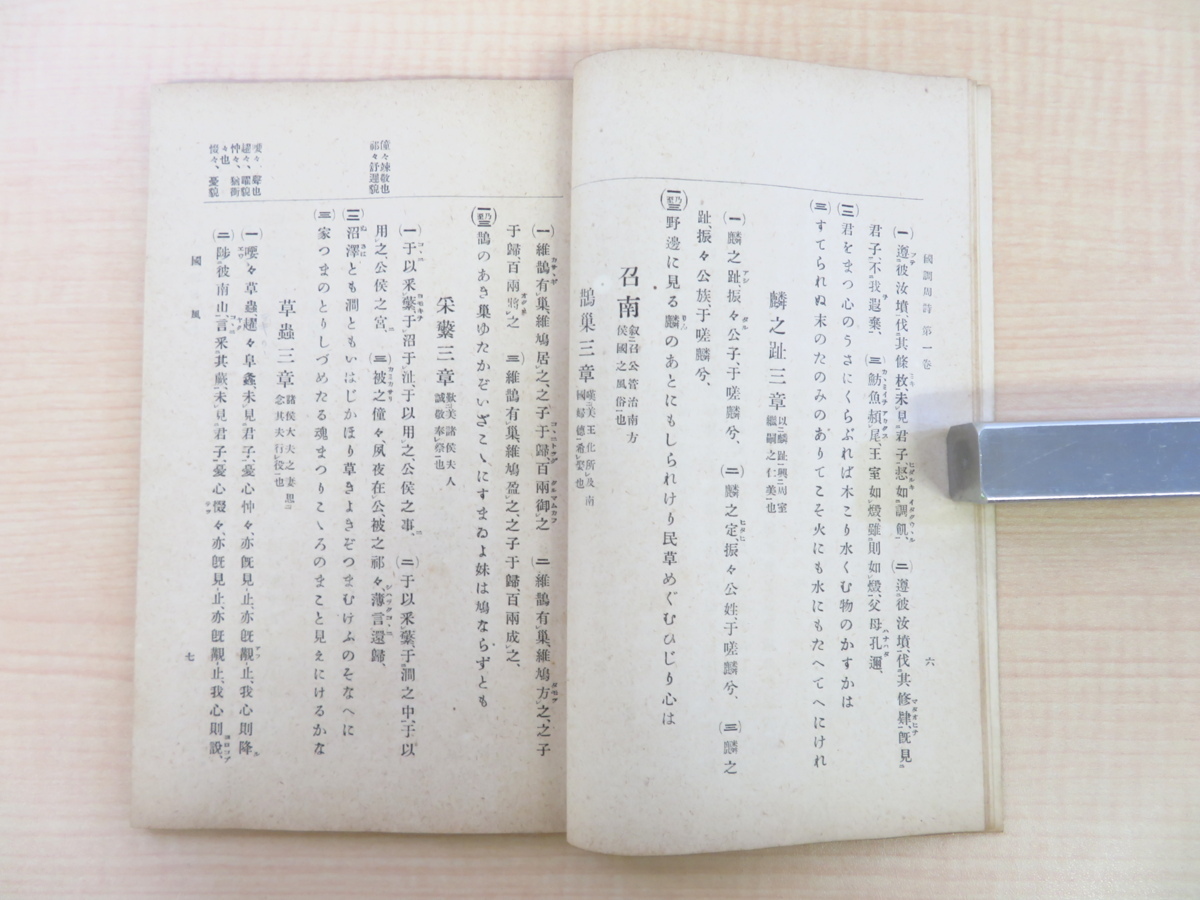 國訓周詩 第一卷
六
(一)遵彼汝墳、伐其條枚、未見君子、惄如調飢、 (二)遵彼汝墳、伐其條肄、既見
君子、不我遐棄、 (三)魴魚赬尾、王室如燬、雖則如燬、父母孔邇、
(二)君をまつ心のうさにくらぶれば木こり水くむ物のかずかは
(三)すてられぬ末のたのみのありてこそ火にも水にもたへてへにけれ
麟之趾三章 以麟趾興周室繼嗣之仁美也
(一)麟之趾、振々公子、于嗟麟兮、 (二)麟之定、振々公姓、于嗟麟兮、 (三)麟之
趾、振々公族、于嗟麟兮、
(一乃至三)野邊に見る麟のあとにもしられけり民草めぐむひじり心は
召南 叙召公管治南方侯國之風俗也
鵲巢三章 嘆美王化所及南國婦德希娶也
(一)維鵲有巢、維鳩居之、之子于歸、百兩御之 (二)維鵲有巢、維鳩方之、之子
于歸、百兩將之 (三)維鵲有巢、維鳩盈之、之子于歸、百兩成之、
(一乃至三)鵲のあき巢ゆたかぞいざこゝにすまゐよ妹は鳩ならずとも
采蘩三章 歎美諸侯夫人誠敬奉祭也
(一)于以采蘩、于沼于沚、于以用之、公侯之事、 (二)于以采蘩、于澗之中、于以
用之、公侯之宮、 (三)被之僮々、夙夜在公、被之祁々、薄言還歸、
僮々竦敬也
祁々舒遲貌
(一二)沼澤とも澗ともいはじかほり草きよきぞつまむけふのそなへに
(三)家つまのとりしづめたる魂まつりこゝろのまこと見えにけるかな
草蟲三章 諸侯大夫之妻思念其夫行役也
(一)喓々草蟲、趯々阜螽、未見君子、憂心忡々、亦既見止、亦既覯止、我心則降
(二)陟彼南山、言采其蕨、未見君子、憂心惙々、亦既見止、亦既覯止、我心則說、
喓々、聲也
趯々、躍貌
忡々、猶衝
々也
惙々、憂貌
國風
七